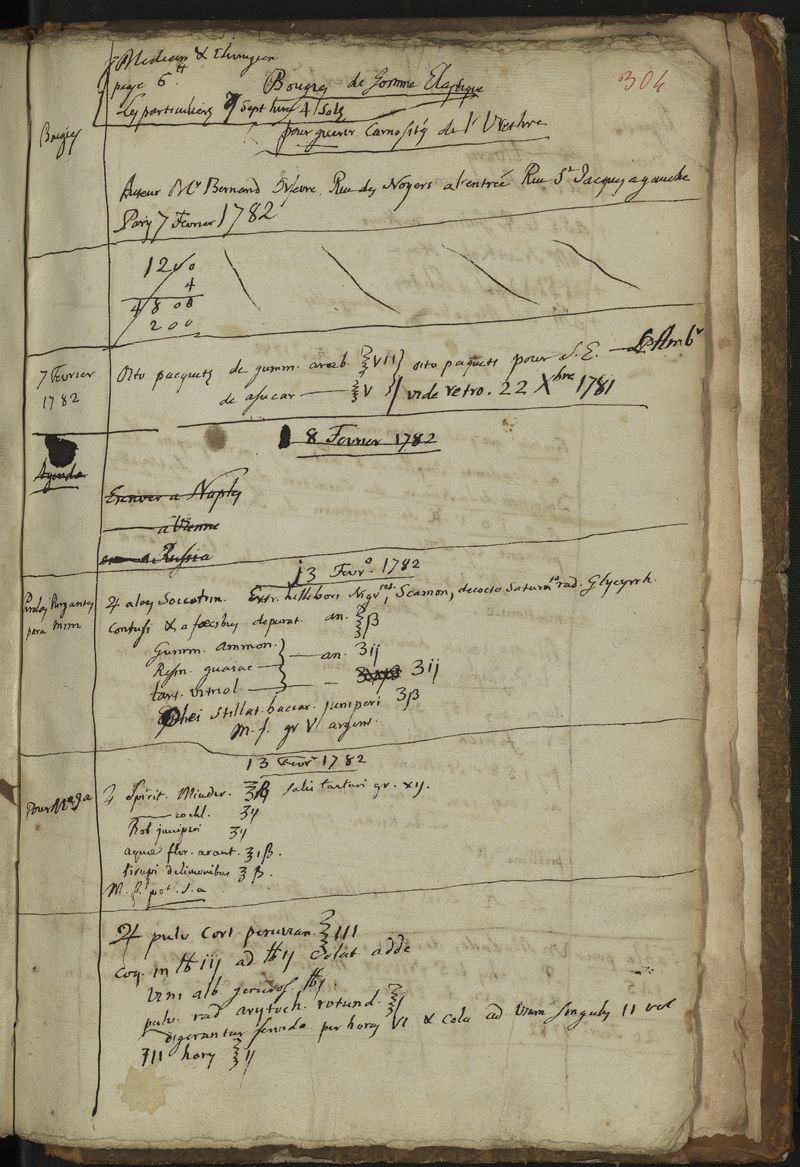 304
Medecin & Chirurgien
page 6 tt
Bougies de Gomme Elastique
Les particuliers 7 Sept livres 4 Sols
Bougies
pour guerir Carnosités de l'Urethre
Auteur Mr Bernard Orfevre. Rue des Noyers a l'entrée Rue St Jacques a gauche
Paris 7 Fevrier 1782
12 0
4
4 8 0 0
2 0 0
7 Fevrier
1782
Otto pacquets de gumm. arab. ℥ VII } otto paquets pour S. E. L'Ambr
de asucar ℥ V } vide retro. 22 Xbre 1781
8 Fevrier 1782
Agenda
Escriver a Naples
a Vienne
a Russia
13 Fevro. 1782
Purgantes
para mim
♃ aloes Soccotrin. Extr. hellebori Nigr, Scamon, decocto rad. Glycyrrh.
Contusi & a fœcibus depurat. an. ℥ β
Gumm. ammon.
Resin. guaiac — an. ʒ ij
tart. vitriol. — ʒ ij
Olei stillat. baccar. juniperi ʒ β
M. f. gr V argent.
13 Fevr 1782
♃ Spirit. Minder. salis tartari gr. xij.
cochl. ʒ ij
Rob juniperi ʒ ij
aquæ flor. arant. ℥ 1 β.
sirupi de limonibus ℥ β.
M. f. pot. s. a
♃ pulv cort. peruvian. ℥ III
coq. in ℔ iij ad ℔ ij Colat adde
Vini alb. generos. ℔ j
pulv. rad arystoch. rotund. ℥ j
digerantur fervida per horas VI & cola ad usum singulis 11 vel
111 horis ℥ ij